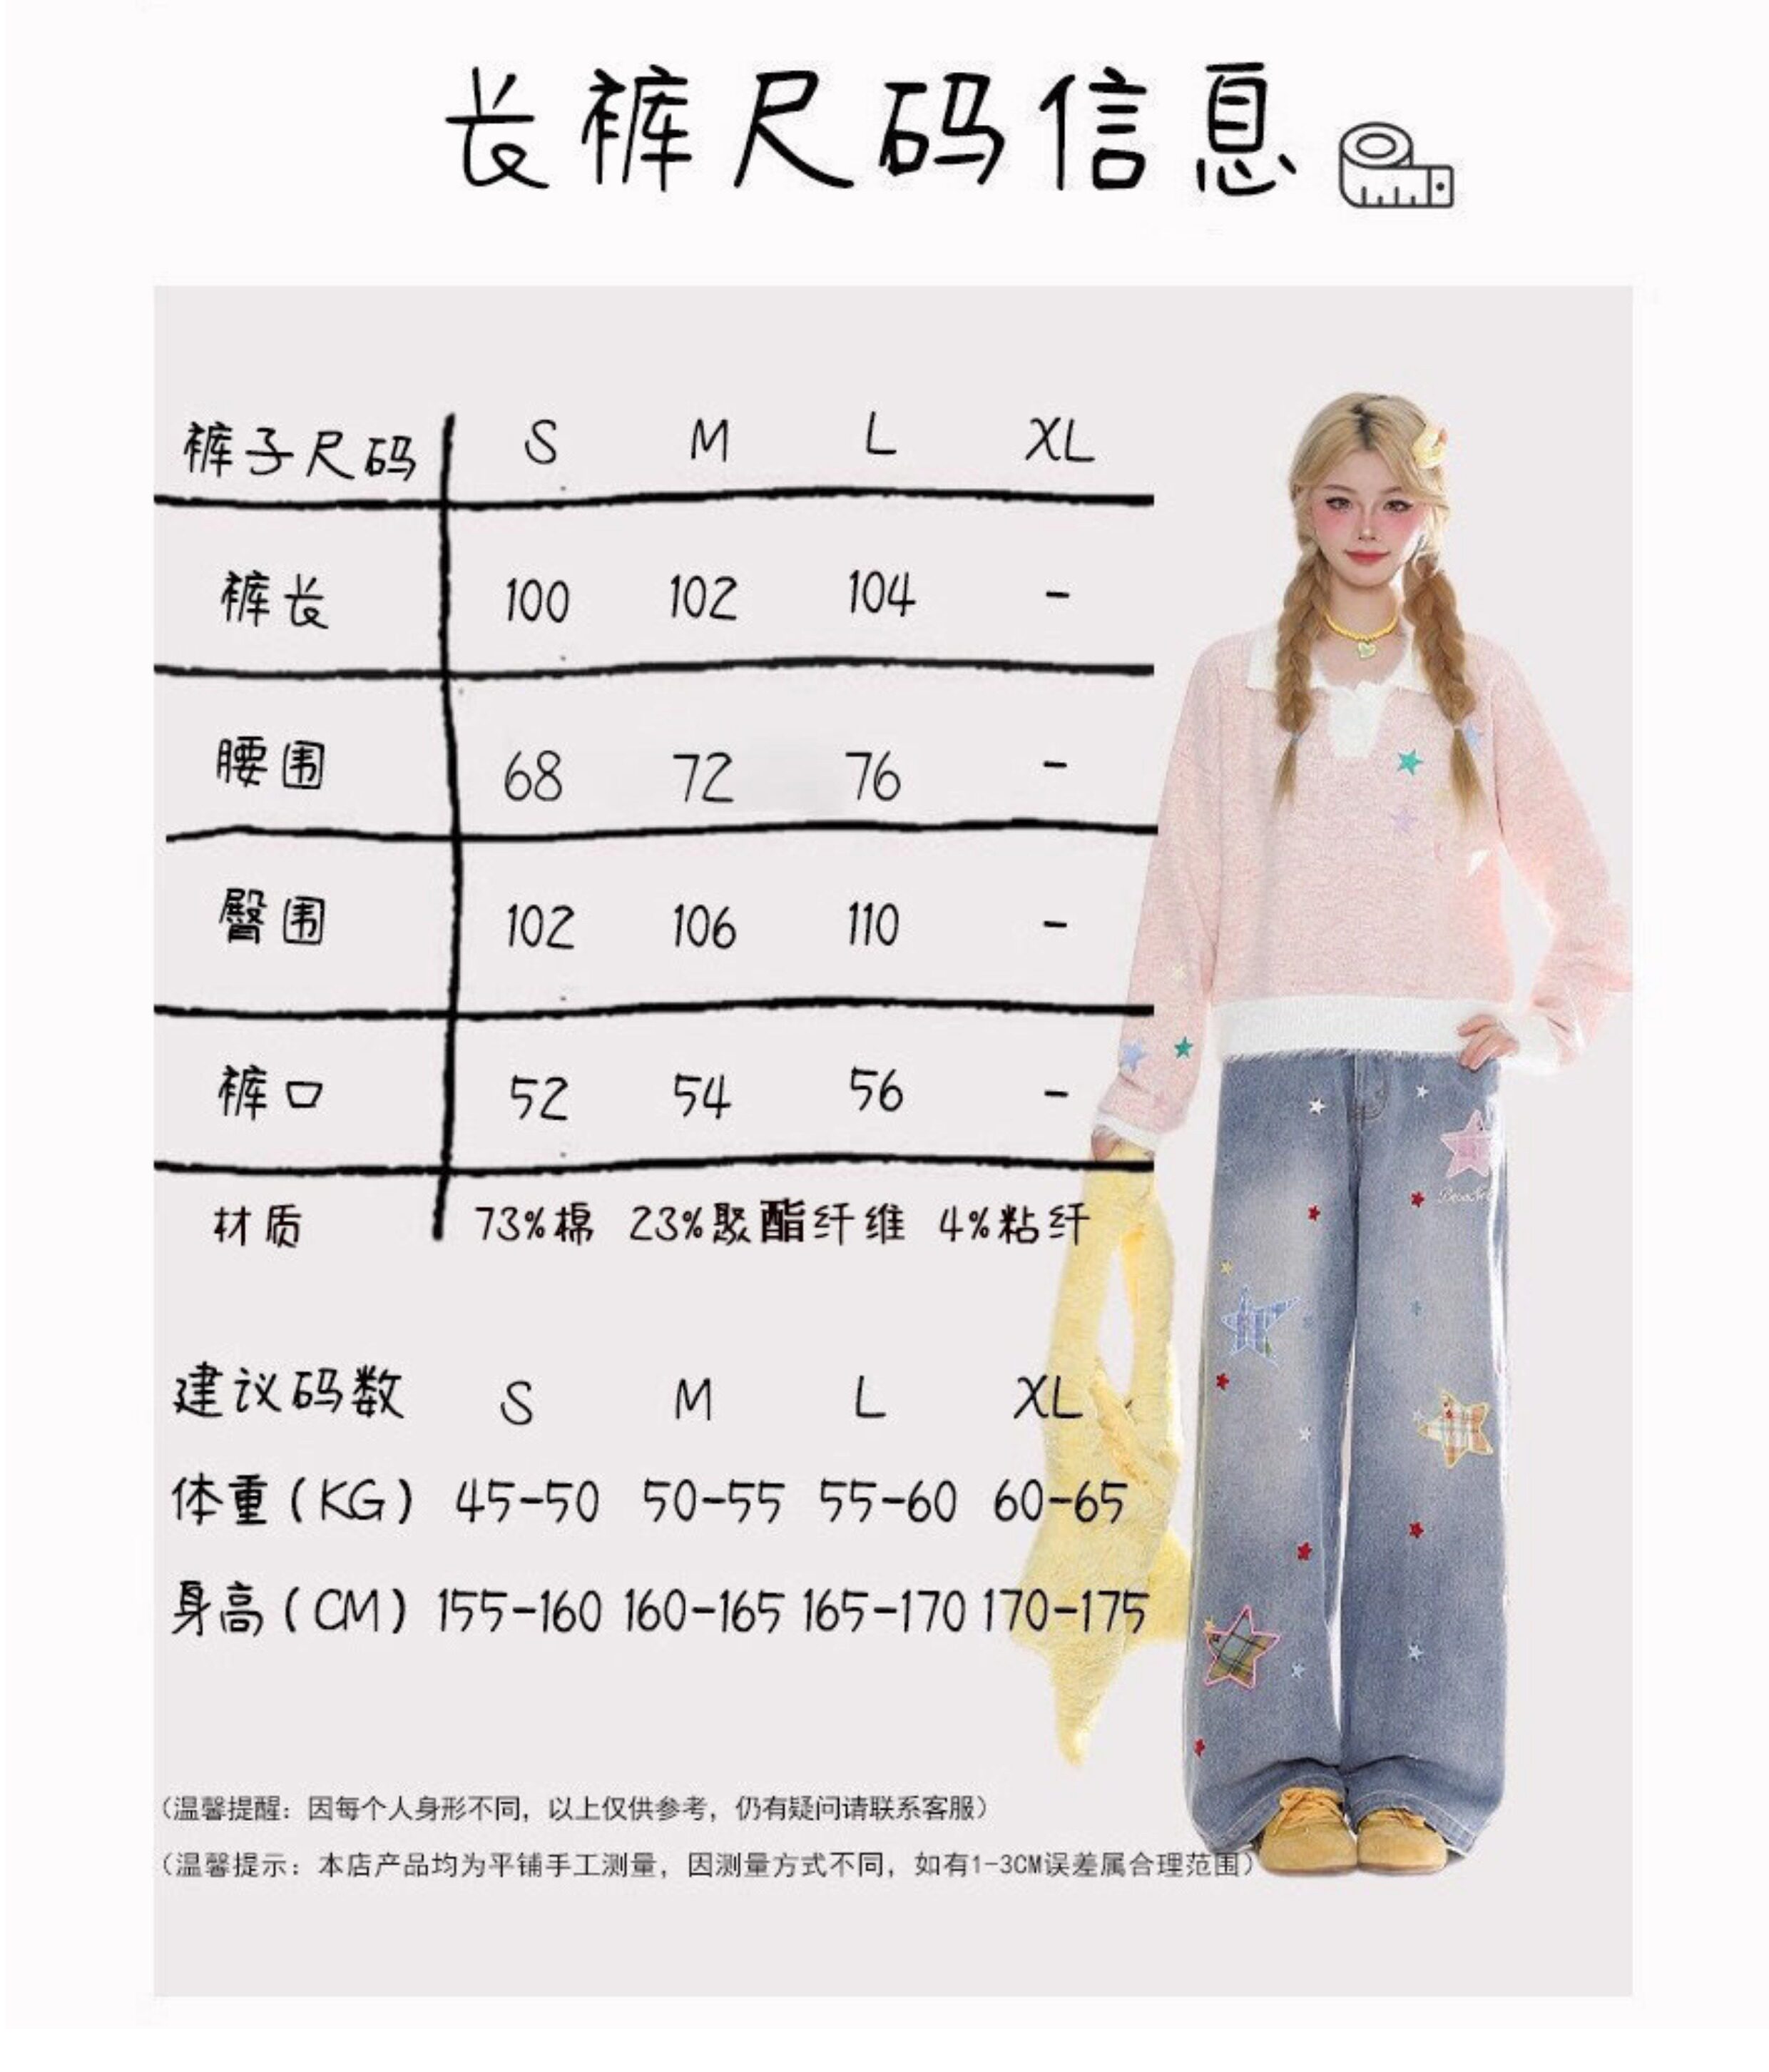 长裤尺码信息
裤子尺码 S M L XL
裤长 100 102 104 -
腰围 68 72 76 -
臀围 102 106 110 -
裤口 52 54 56 -
材质 73%棉 23%聚酯纤维 4%粘纤
建议码数 S M L XL
体重(KG) 45-50 50-55 55-60 60-65
身高(CM) 155-160 160-165 165-170 170-175
（温馨提醒：因每个人身形不同，以上仅供参考，仍有疑问请联系客服）
（温馨提示：本店产品均为平铺手工测量，因测量方式不同，如有1-3CM误差属合理范围）